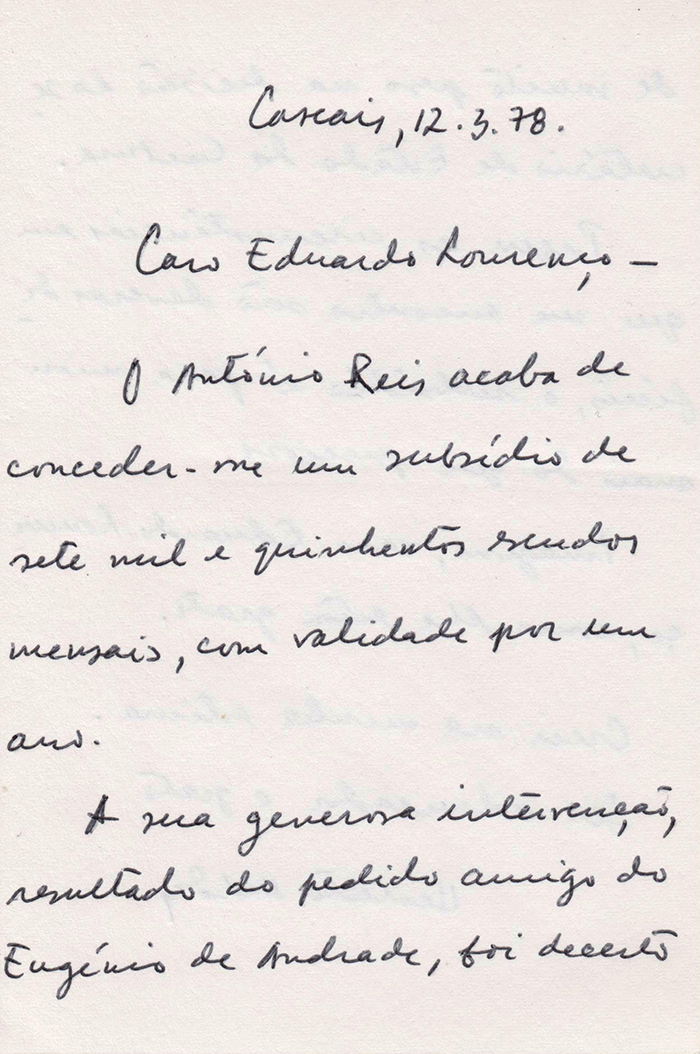 Cascais, 12.3.78.
Caro Eduardo Lourenço –
O António Reis acaba de
conceder-me um subsídio de
sete mil e quinhentos escudos
mensais, com validade por um
ano.
A sua generosa intervenção,
resultado do pedido amigo do
Eugénio de Andrade, foi decerto